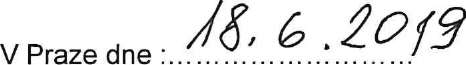 V Praze dne :........................... 18. 6. 2019